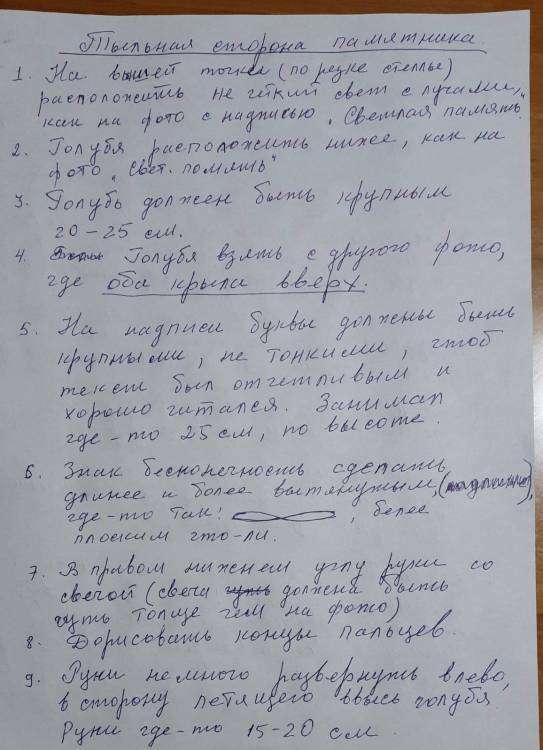 Тыльная сторона памятника.
1. На вышей точке (по резке стеллы)
расположить не чёткий свет с лучами,
как на фото с надписью „Светлая память"
2. Голубя расположить ниже, как на
фото „Свет. помять"
3. Голубь должен быть крупным
20-25 см.
4. Голубя взять с другого фото,
где оба крыла вверх.
5. На надписи буквы должны быть
крупными, не тонкими, чтоб
текст был отчётливым и
хорошо читался. Занимал
где-то 25 см, по высоте.
6. Знак бесконечность сделать
длинее и более вытянутым,
где-то так: , более
плоским что-ли.
7. В правом нижнем углу руки со
свечой (свеча чуть должна быть
чуть толще чем на фото)
8. Дорисовать концы пальцев.
9. Руки немного развернуть влево,
в сторону летящего ввысь голубя
Руки где-то 15-20 см.